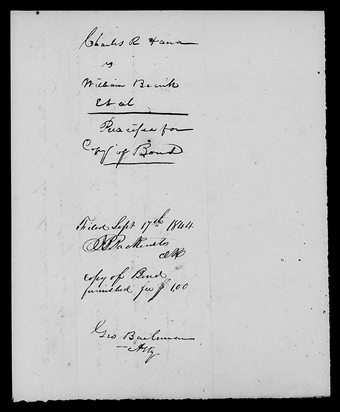 Charles R Hana
vs
William Brink
Et al
Precipe for
Copy of Bond
Filed Sept 17th 1844
Clk
Copy of Bond
furnished fee $1.00
Geo
Atty